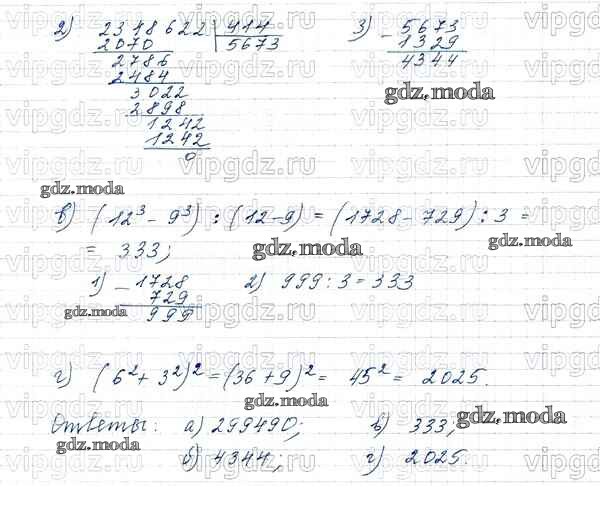 2) 2348622 | 414
2070 5673
2786
2484
3022
2898
1242
1242
0
3) - 5673
1329
4344
gdz.moda
gdz.moda
в) (12³ - 9³) : (12 - 9) = (1728 - 729) : 3 =
gdz.moda
= 333;
gdz.moda
1) - 1728
729
999
2) 999 : 3 = 333
gdz.moda
г) (6² + 3²)² = (36 + 9)² = 45² = 2025.
gdz.moda
Ответы: а) 299490; в) 333;
gdz.moda
gdz.moda
б) 4344; г) 2025.